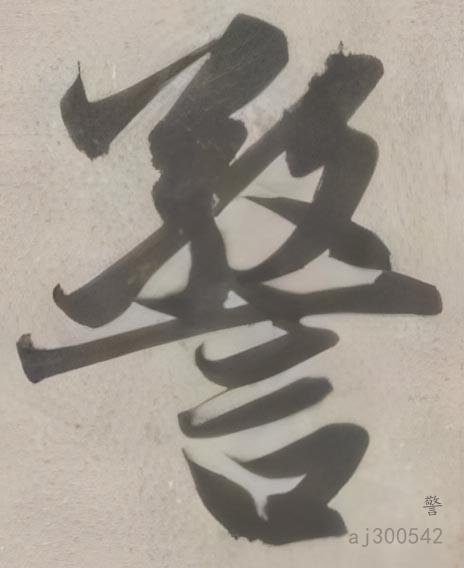 警
警
aj300542